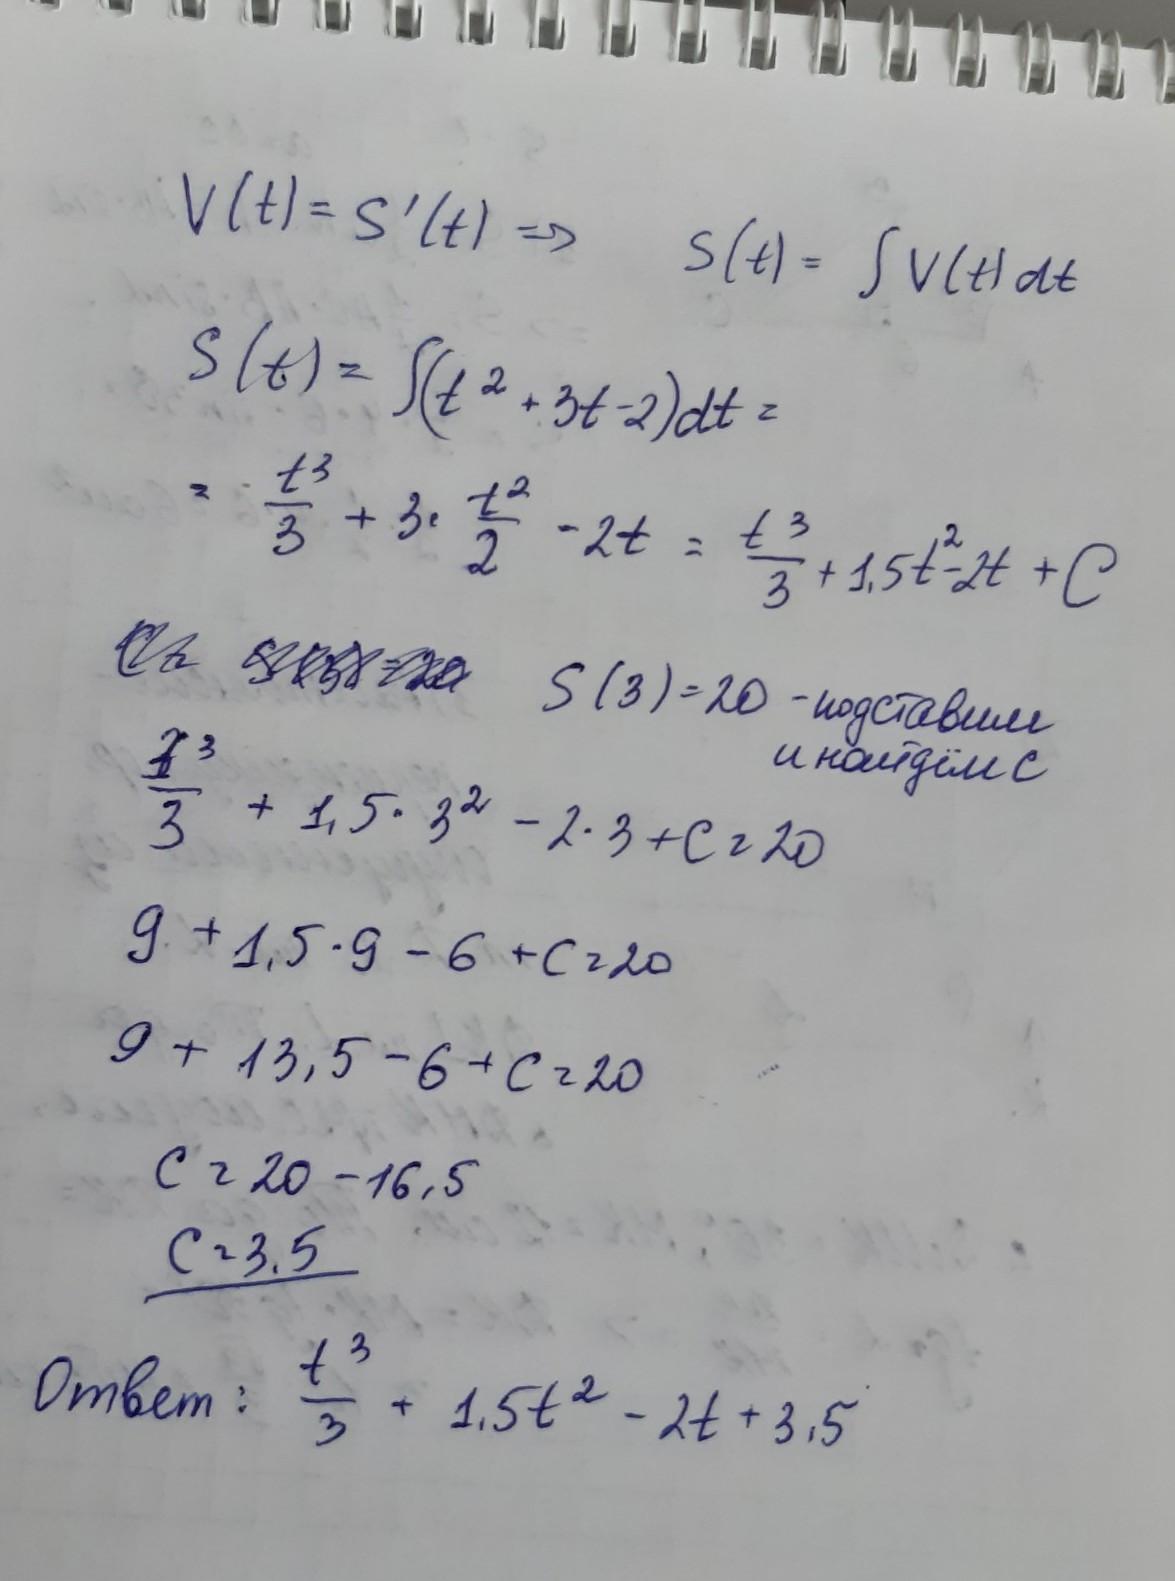 V(t) = S'(t) => S(t) = ∫V(t)dt
S(t) = ∫(t² + 3t - 2)dt =
= t³/3 + 3· t²/2 - 2t = t³/3 + 1,5t² - 2t + C
S(3) = 20 - подставим
и найдём C
3³/3 + 1,5· 3² - 2·3 + C = 20
9 + 1,5·9 - 6 + C = 20
9 + 13,5 - 6 + C = 20
C = 20 - 16,5
C = 3,5
Ответ: t³/3 + 1,5t² - 2t + 3,5